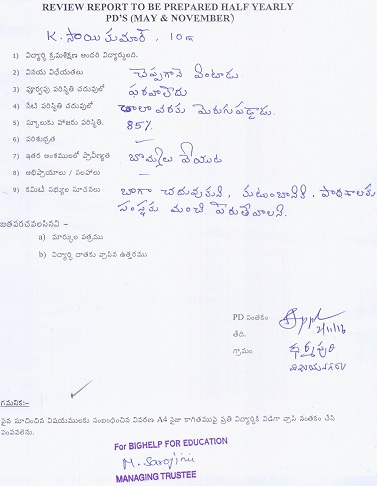 REVIEW REPORT TO BE PREPARED HALF YEARLY
PD'S (MAY & NOVEMBER)
K. సాయి కుమార్, 10th
1) విద్యార్థి క్రమశిక్షణ అందరి విద్యార్థులది.
2) వినయ విధేయతలు చెప్పగానే వింటాడు
3) పూర్వపు పరిస్థితి చదువులో పరవాలేదు
4) నేటి పరిస్థితి చదువులో చాలా వరకు మెరుగుపడ్డాడు
5) స్కూలుకు హాజరు పరిస్థితి. 85%
6) పరిశుభ్రత —
7) ఇతర అంశములలో ప్రావీణ్యత బొమ్మలు వేయుట
8) అభిప్రాయాలు / సలహాలు —
9) కమిటీ సభ్యుల సూచనలు బాగా చదువుకుని, కుటుంబానికి, పాఠశాలకు
సంస్థకు మంచి పేరుతేవాలని.
జతపరచవలసినవి –
a) మార్కుల పత్రము
b) విద్యార్థి దాతకు వ్రాసిన ఉత్తరము
PD సంతకం
తేది. 2/11/16
గ్రామం ధర్మపురి
విజయనగరం
గమనిక:–
పైన సూచించిన విషయములకు సంబంధించిన వివరణ A4 సైజు కాగితముపై ప్రతి విద్యార్థికి విడిగా వ్రాసి సంతకం చేసి
పంపవలెను.
For BIGHELP FOR EDUCATION
M. Sarojini
MANAGING TRUSTEE